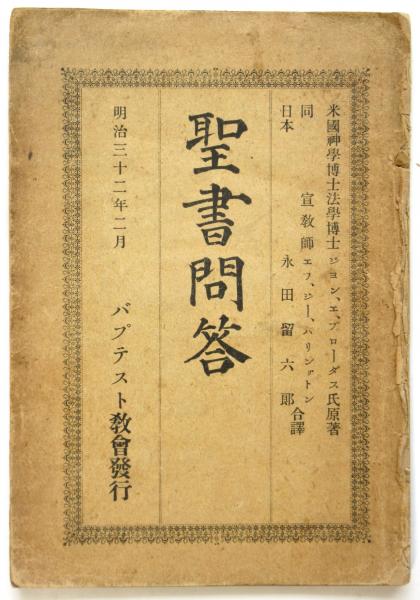 米國神學博士法學博士ジョン、エ、ブローダス氏原著
同 宣敎師エフ、ジー、ハリントン
日本 永田留六郎
合譯
聖書問答
明治三十二年二月
バプテスト敎會發行